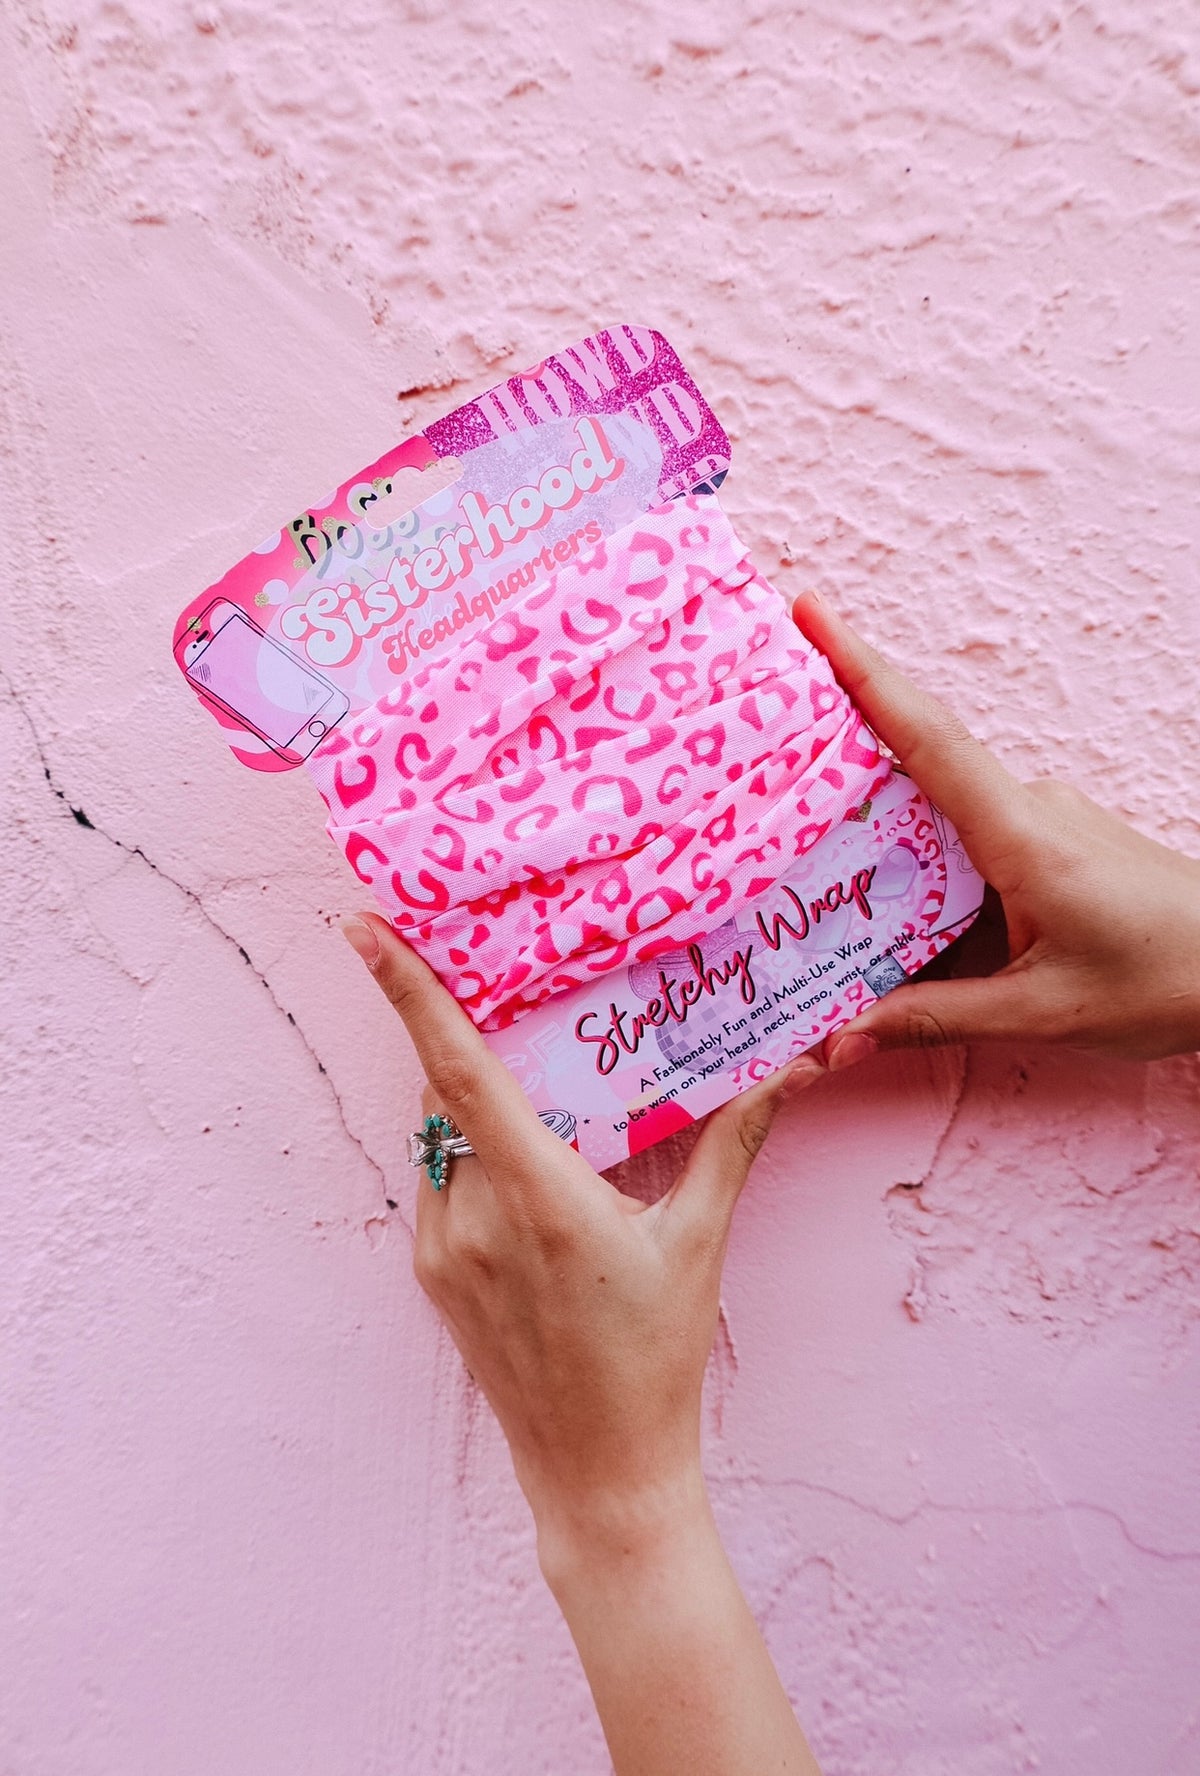 HOWD
WD
Boss
Sisterhood
Headquarters
Stretchy Wrap
A Fashionably Fun and Multi-Use Wrap
to be worn on your head, neck, torso, wrist, or ankle